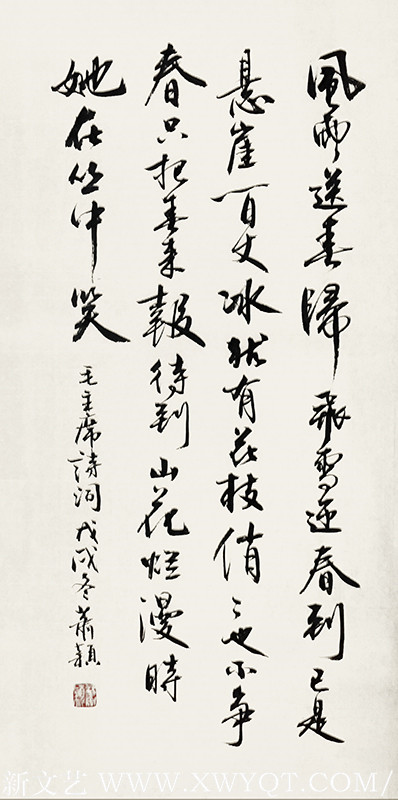 風雨送春歸飛雪迎春到已是
懸崖百丈冰猶有花枝俏々也不爭
春只把春來報待到山花烂漫時
她在丛中笑
毛主席詩词戊戌冬蕭穎
新文艺 WWW.XWYQT.COM/